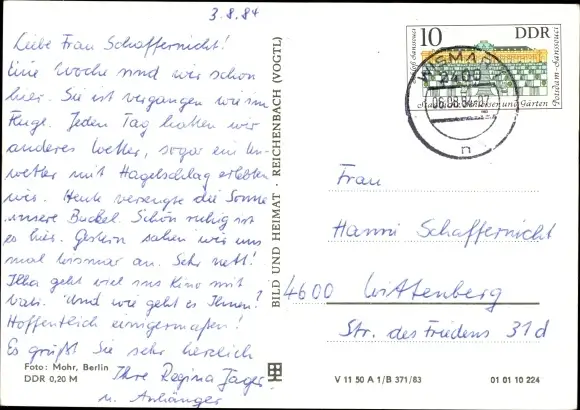 3.8.84
Liebe Frau Schaffernicht!
Eine Woche sind wir schon
hier. Sie ist vergangen wie im
Fluge. Jeden Tag hatten wir
anderes Wetter, sogar ein Un-
wetter mit Hagelschlag erlebten
wir. Heute versengte die Sonne
unsere Buckel. Schön ruhig ist
es hier. Gestern sahen wir uns
mal Wismar an. Sehr nett!
geht viel ins Kino mit
Vati. Und wie geht es Ihnen?
Hoffentlich einigermaßen!
Es grüßt Sie sehr herzlich
Ihre Regina Jager
u. Anhänger
Foto: Mohr, Berlin
DDR 0,20 M
BILD UND HEIMAT · REICHENBACH (VOGTL)
10 DDR
Schloß Sanssouci
Potsdam-Sanssouci
Staatliche Schlösser und Gärten
WISMAR
2400
06.08.84
n
Frau
Hanni Schaffernicht
4600 Wittenberg
Str. des Friedens 31d
V 11 50 A 1/B 371/83
01 01 10 224